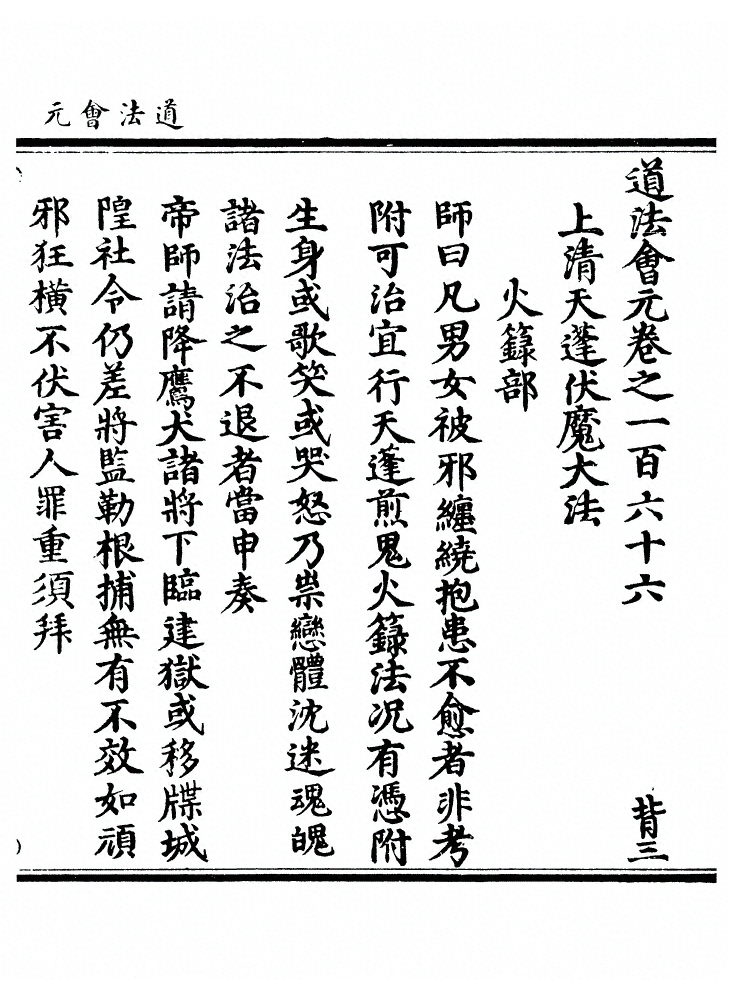 道法會元
道法會元卷之一百六十六 背三
上清天蓬伏魔大法
火籙部
師曰凡男女被邪纏繞抱患不愈者非考
附可治宜行天蓬煎鬼火籙法况有憑附
生身或歌笑或哭怒乃祟戀體沈迷魂魄
諸法治之不退者當申奏
帝師請降鷹犬諸將下臨建獄或移牒城
隍社令仍差將監勒根捕無有不效如頑
邪狂橫不伏害人罪重須拜